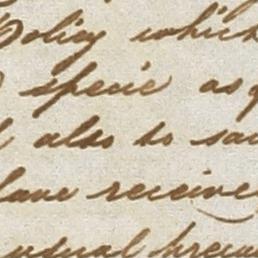 Policy which
specie as
also to
have receive
usual